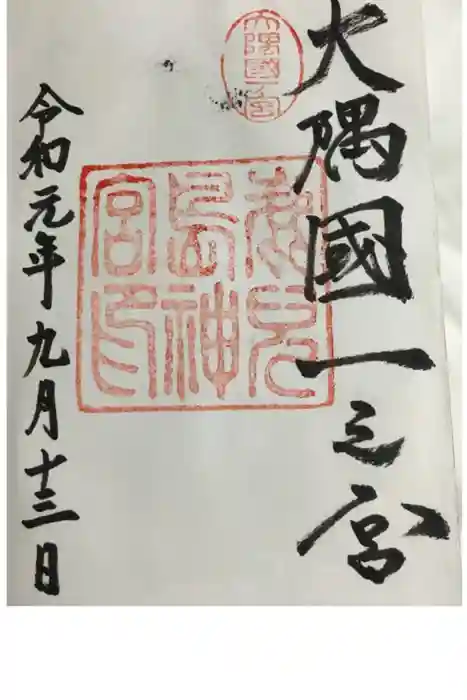 大隅國一之宮
大隅國一宮
鹿児
島神
宮印
令和元年九月十三日